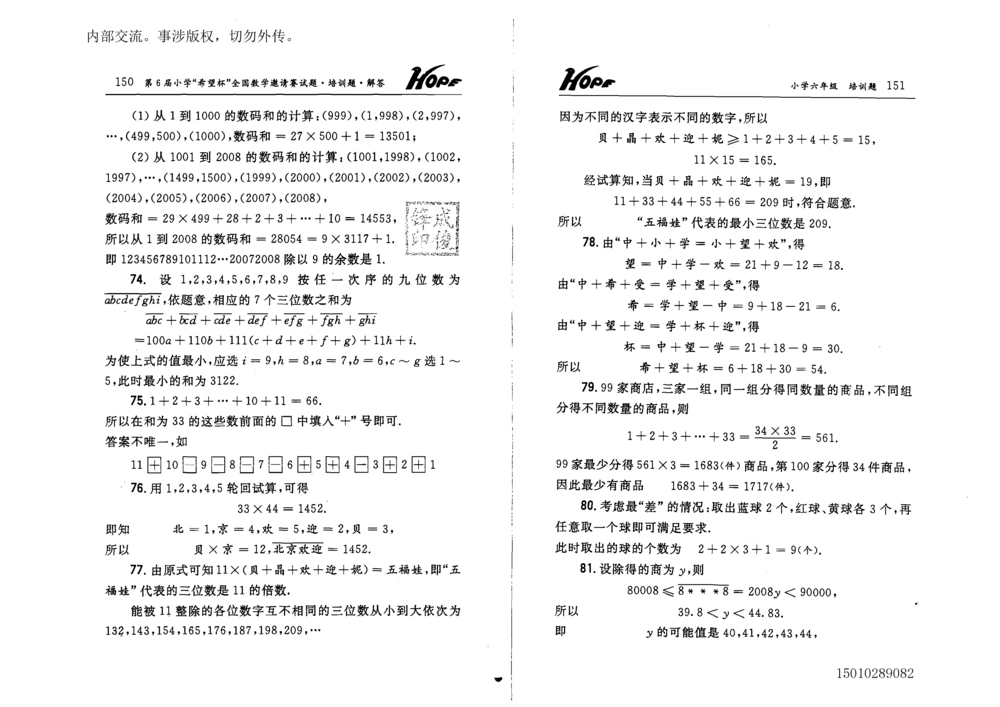 内部交流。事涉版权，切勿外传。
150 第6届小学“希望杯”全国数学邀请赛试题·培训题·解答 HOPE
(1) 从 1 到 1000 的数码和的计算:(999),(1,998),(2,997),
…,(499,500),(1000),数码和 = 27×500+1 = 13501;
(2) 从 1001 到 2008 的数码和的计算:(1001,1998),(1002,
1997),…,(1499,1500),(1999),(2000),(2001),(2002),(2003),
(2004),(2005),(2006),(2007),(2008),
数码和 = 29×499+28+2+3+…+10 = 14553,
所以从 1 到 2008 的数码和 = 28054 = 9×3117+1.
即 123456789101112…20072008 除以 9 的余数是 1.
74. 设 1,2,3,4,5,6,7,8,9 按任一次序的九位数为
abcdefghi,依题意,相应的 7 个三位数之和为
abc + bcd + cde + def + efg + fgh + ghi
=100a+110b+111(c+d+e+f+g)+11h+i.
为使上式的值最小,应选 i = 9,h = 8,a = 7,b = 6,c ~ g 选 1 ~
5,此时最小的和为 3122.
75. 1+2+3+…+10+11 = 66.
所以在和为 33 的这些数前面的 □ 中填入“+”号即可.
答案不唯一,如
11 ⊞ 10 ⊟ 9 ⊟ 8 ⊟ 7 ⊟ 6 ⊞ 5 ⊞ 4 ⊟ 3 ⊞ 2 ⊞ 1
76. 用 1,2,3,4,5 轮回试算,可得
33×44 = 1452.
即知 北 = 1,京 = 4,欢 = 5,迎 = 2,贝 = 3,
所以 贝×京 = 12,北京欢迎 = 1452.
77. 由原式可知 11×(贝+晶+欢+迎+妮) = 五福娃,即“五
福娃”代表的三位数是 11 的倍数.
能被 11 整除的各位数字互不相同的三位数从小到大依次为
132,143,154,165,176,187,198,209,…
HOPE 小学六年级 培训题 151
因为不同的汉字表示不同的数字,所以
贝+晶+欢+迎+妮 ⩾ 1+2+3+4+5 = 15,
11×15 = 165.
经试算知,当贝+晶+欢+迎+妮 = 19,即
11+33+44+55+66 = 209 时,符合题意.
所以 “五福娃”代表的最小三位数是 209.
78. 由“中+小+学 = 小+望+欢”,得
望 = 中+学-欢 = 21+9-12 = 18.
由“中+希+受 = 学+望+受”,得
希 = 学+望-中 = 9+18-21 = 6.
由“中+望+迎 = 学+杯+迎”,得
杯 = 中+望-学 = 21+18-9 = 30.
所以 希+望+杯 = 6+18+30 = 54.
79. 99 家商店,三家一组,同一组分得同数量的商品,不同组
分得不同数量的商品,则
1+2+3+…+33 = 34×33/2 = 561.
99 家最少分得 561×3 = 1683(件) 商品,第 100 家分得 34 件商品,
因此最少有商品 1683+34 = 1717(件).
80. 考虑最“差”的情况:取出蓝球 2 个,红球、黄球各 3 个,再
任意取一个球即可满足要求.
此时取出的球的个数为 2+2×3+1 = 9(个).
81. 设除得的商为 y,则
80008 ⩽ 8***8 = 2008y < 90000,
所以 39.8 < y < 44.83.
即 y 的可能值是 40,41,42,43,44,
15010289082